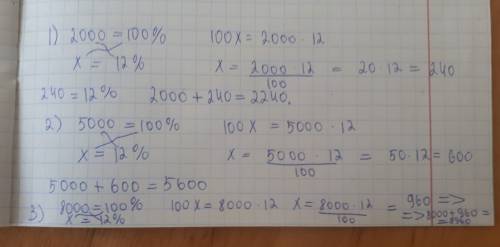 1) 2000 = 100%   100x = 2000 · 12
x = 12%   x = 2000 · 12 / 100 = 20 · 12 = 240
240 = 12%   2000 + 240 = 2240.
2) 5000 = 100%   100x = 5000 · 12
x = 12%   x = 5000 · 12 / 100 = 50 · 12 = 600
5000 + 600 = 5600
3) 8000 = 100%   100x = 8000 · 12   x = 8000 · 12 / 100 = 960 =>
x = 12%   => 8000 + 960 =
= 8960